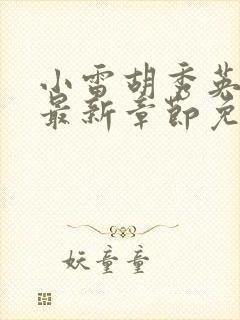 小雷胡秀英
最新章节免
妖童童